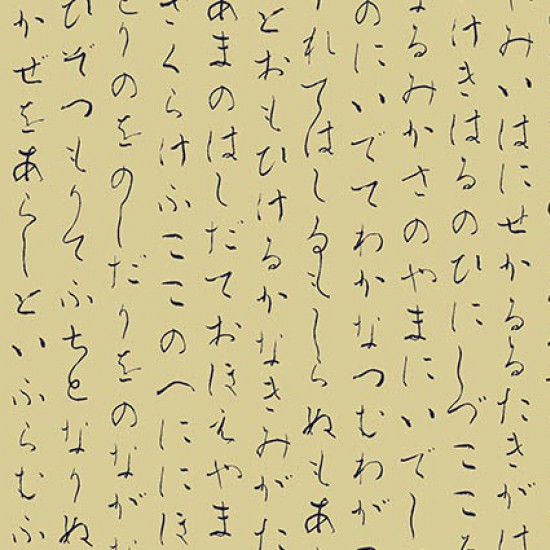 やみいはにせかるるたきがは
けきはるのひにしづここ
なるみかさのやまにいでし
のにいでてわかなつむわが
れてはしるもしらぬもあ
とおもひけるかなきみがた
あまのはしだておほえやま
さくらけふここのへににほ
とりのをのしだりをのなが
ひぞつもりてふちとなりぬ
かぜをあらしといふらむふ